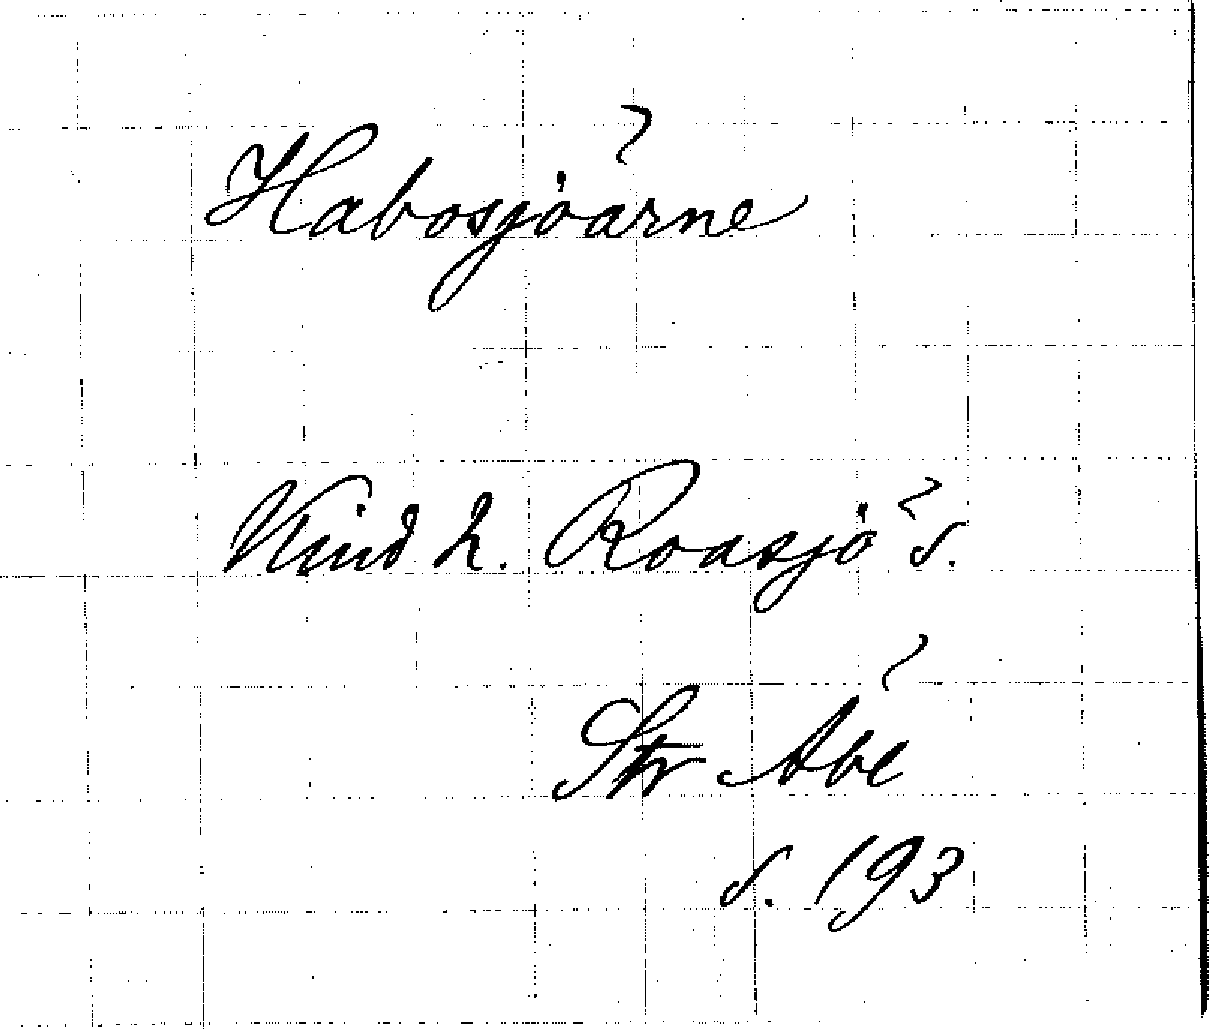 Habosjöarne
Kind h. Roasjö s.
Str Åbe
s. 193